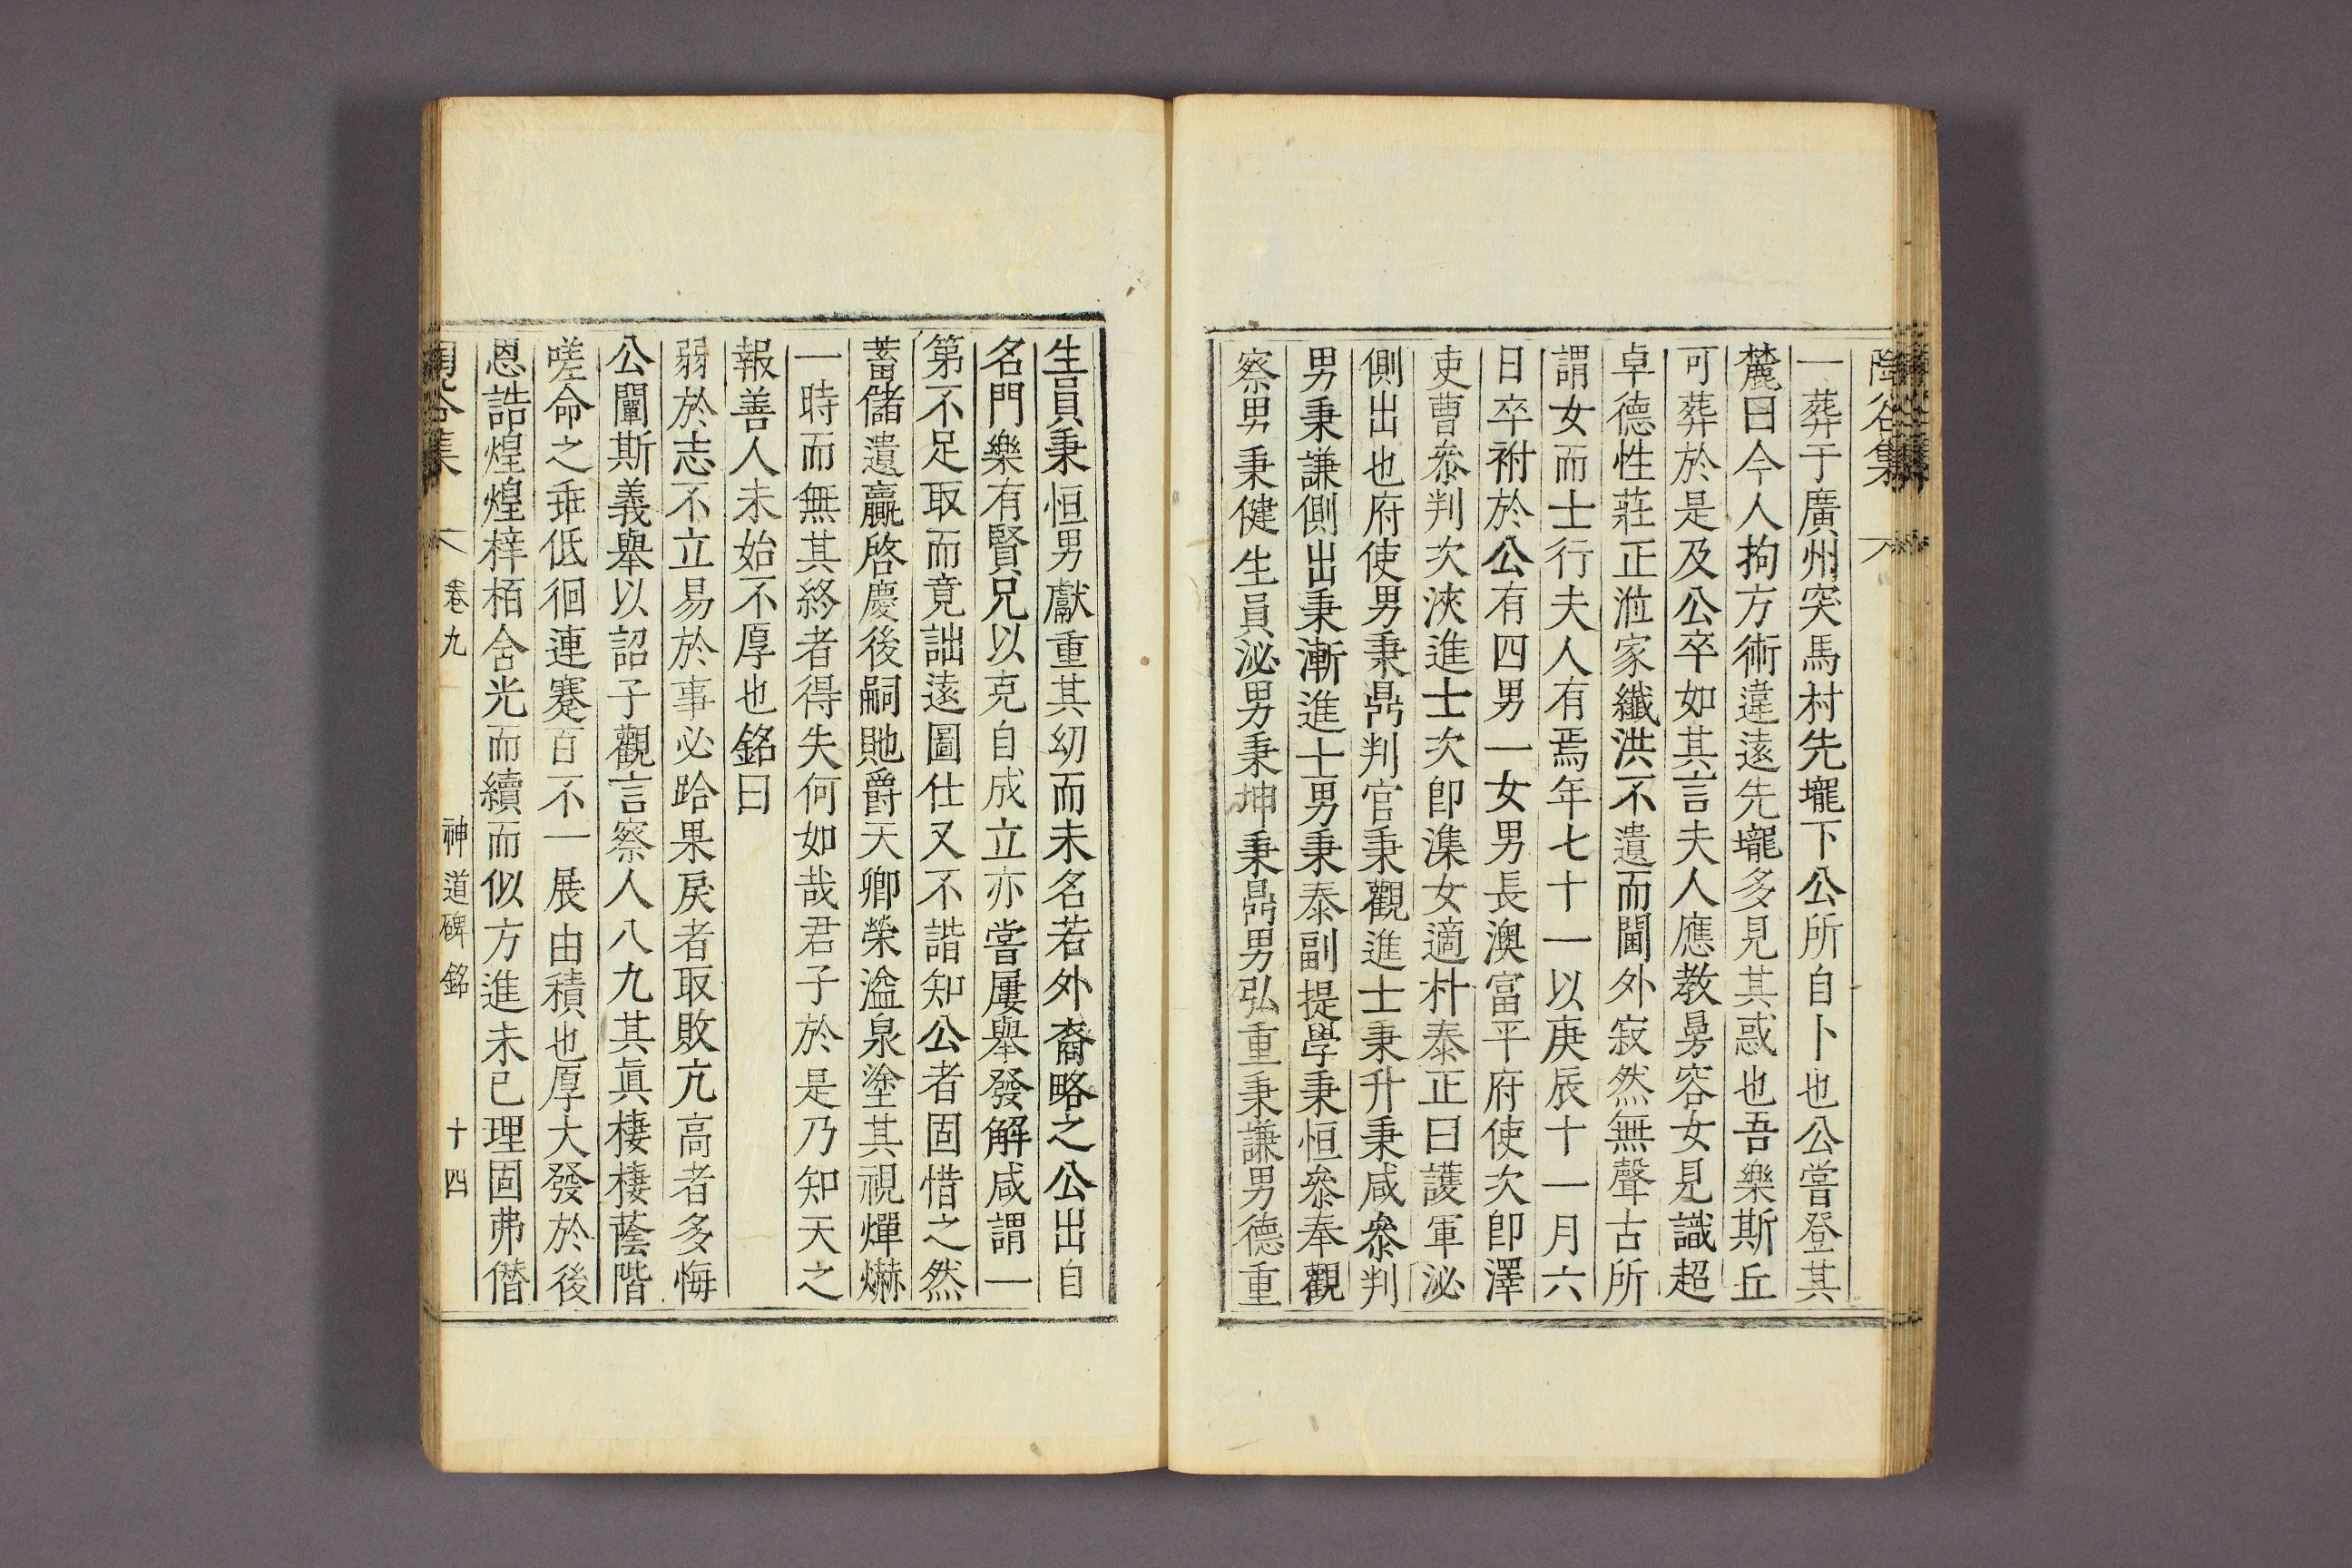 陶谷集
一葬于廣州突馬村先壠下公所自卜也公嘗登其
麓曰今人拘方術違遠先壠多見其惑也吾樂斯丘
可葬於是及公卒如其言夫人應教㝵容女見識超
卓德性莊正涖家纖洪不遺而閫外寂然無聲古所
謂女而士行夫人有焉年七十一以庚辰十一月六
日卒祔於公有四男一女男長澳富平府使次卽澤
吏曹叅判次浹進士次卽潗女適朴泰正曰護軍泌
側出也府使男秉鼎判官秉觀進士秉升秉咸叅判
男秉謙側出秉漸進士男秉泰副提學秉恒叅奉觀
察男秉健生員泌男秉坤秉鼎男弘重秉謙男德重
生員秉恒男獻重其幼而未名若外裔略之公出自
名門樂有賢兄以克自成立亦嘗屢舉發解咸謂一
第不足取而竟詘遠圖仕又不諧知公者固惜之然
蓄儲遺羸啓慶後嗣貤爵天卿榮溢泉塗其視燀爀
一時而無其終者得失何如哉君子於是乃知天之
報善人未始不厚也銘曰
弱於志不立易於事必跲果戾者取敗亢高者多悔
公闡斯義舉以詔子觀言察人八九其眞棲棲蔭階
嗟命之乖低徊連蹇百不一展由積也厚大發於後
恩誥煌煌梓栢含光而續而似方進未已理固弗僣
陶谷集 卷九 神道碑銘 十四